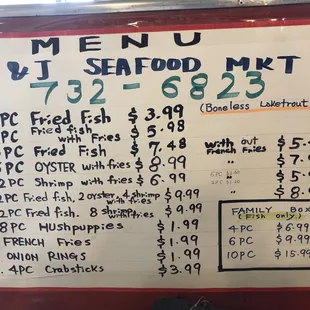 MENU
& J SEAFOOD MKT
732-6823
(Boneless Laketrout
PC Fried Fish $3.99
PC Fried fish with Fries $5.98
PC Fried Fish $7.48
PC OYSTER with fries $8.99
2PC Shrimp with fries $6.99
2PC Fried fish, 2 oyster, 4 shrimp with fries $9.99
2PC Fried fish. 8 shrimp with fries $9.99
8PC Hushpuppies $1.99
FRENCH Fries $1.99
ONION RINGS $1.99
4PC Crabsticks $3.99
with out French Fries $5.
" $7.
6PC $5.
12PC $8.
FAMILY BOX
(Fish only)
4PC $6.99
6PC $9.99
10PC $15.99